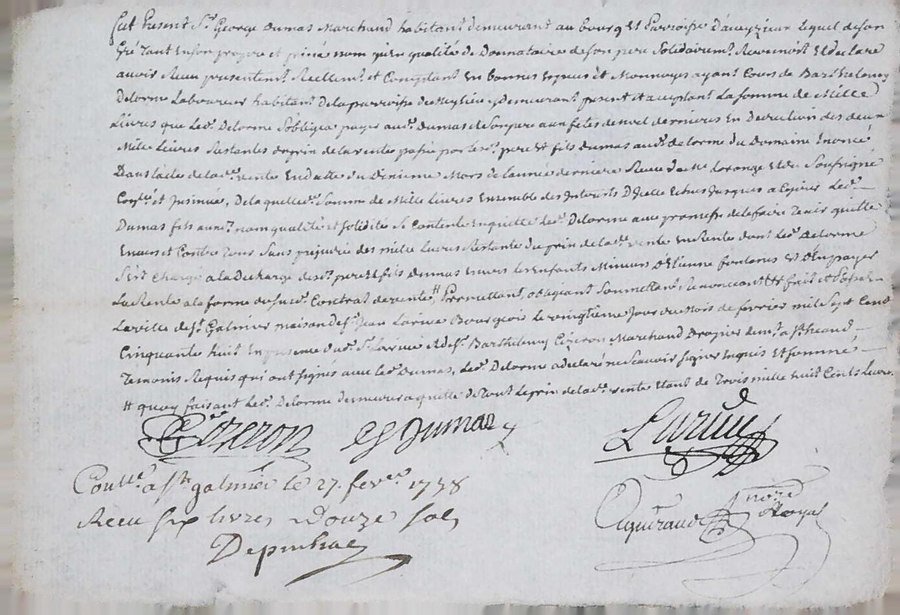 fut Present Sr. George Dumas Marchand habitant demeurant au bourg et Parroisse D'aveyzieu lequel de son
gré tant en son propre et privé nom qu'en qualité de Donnataire de son pere Solidairemt. Reconnoit et declare
avoir Receu presentemt. Reellemt. et Comptant En bonnes Especes et Monnoyes ayant Cours de Barthelemy
Delorme Laboureur habitant de la parroisse de y demeurant present et acceptant La somme de Mille
Livres que led. Delorme S'obligea payer aud. Dumas de Son pere aux fetes de noel dernieres En Deduction des deux
Mille Livres Restantes du prix de la vente passé par lesd. pere et fils Dumas aud. delorme du Domaine Enoncé
Dans l'acte de lad. vente En datte du Dixieme Mars de l'année derniere Receu de Me. Lorange et de Soussigné
Conllé. et Insinué, De laquelle d. Somme de Mille Livres ensemble des Interets D'Icelle Echus Jusques a ce jour Led.
Dumas fils aux d. nom qualité et Solidité Se Contente En quitte led. Delorme avec promesse de le faire Tenir quitte
Envers et Contre Tous Sans prejudice des mille Livres Restantes du prix de lad. vente En Rente dont led. Delorme
S'est Chargé a la Decharge desd. pere et fils Dumas Envers les Enfants Mineurs D'Etienne fontanes et d'En payer
La Rente a la forme du susd. Contrat de vente # Permettant, obligeant Soumettant Renoncant &c fait et Passé
La ville de St. Galmier maison de Sr. Jean Larive Bourgeois le vingtieme Jour du Mois de fevrier mil Sept Cend
Cinquante huit En presence dud. Sr. Larive et de Sr. Barthelemy Cézeron Marchand Drapier demt. a St.
Temoins Requis qui ont Signés avec led. Dumas, led. Delorme a declaré ne Scavoir Signer Enquis et Sommé
# quoy faisant led. Delorme demeurera quitte de Tout le prix de lad. vente Etant de Trois mille huit Cents Livres
Cezeron G Dumas Larive
Conllé. a St. galmier le 27. fever. 1758
Receu six livres Douze sols
Depinhac
Aguiraud Nore. Royal